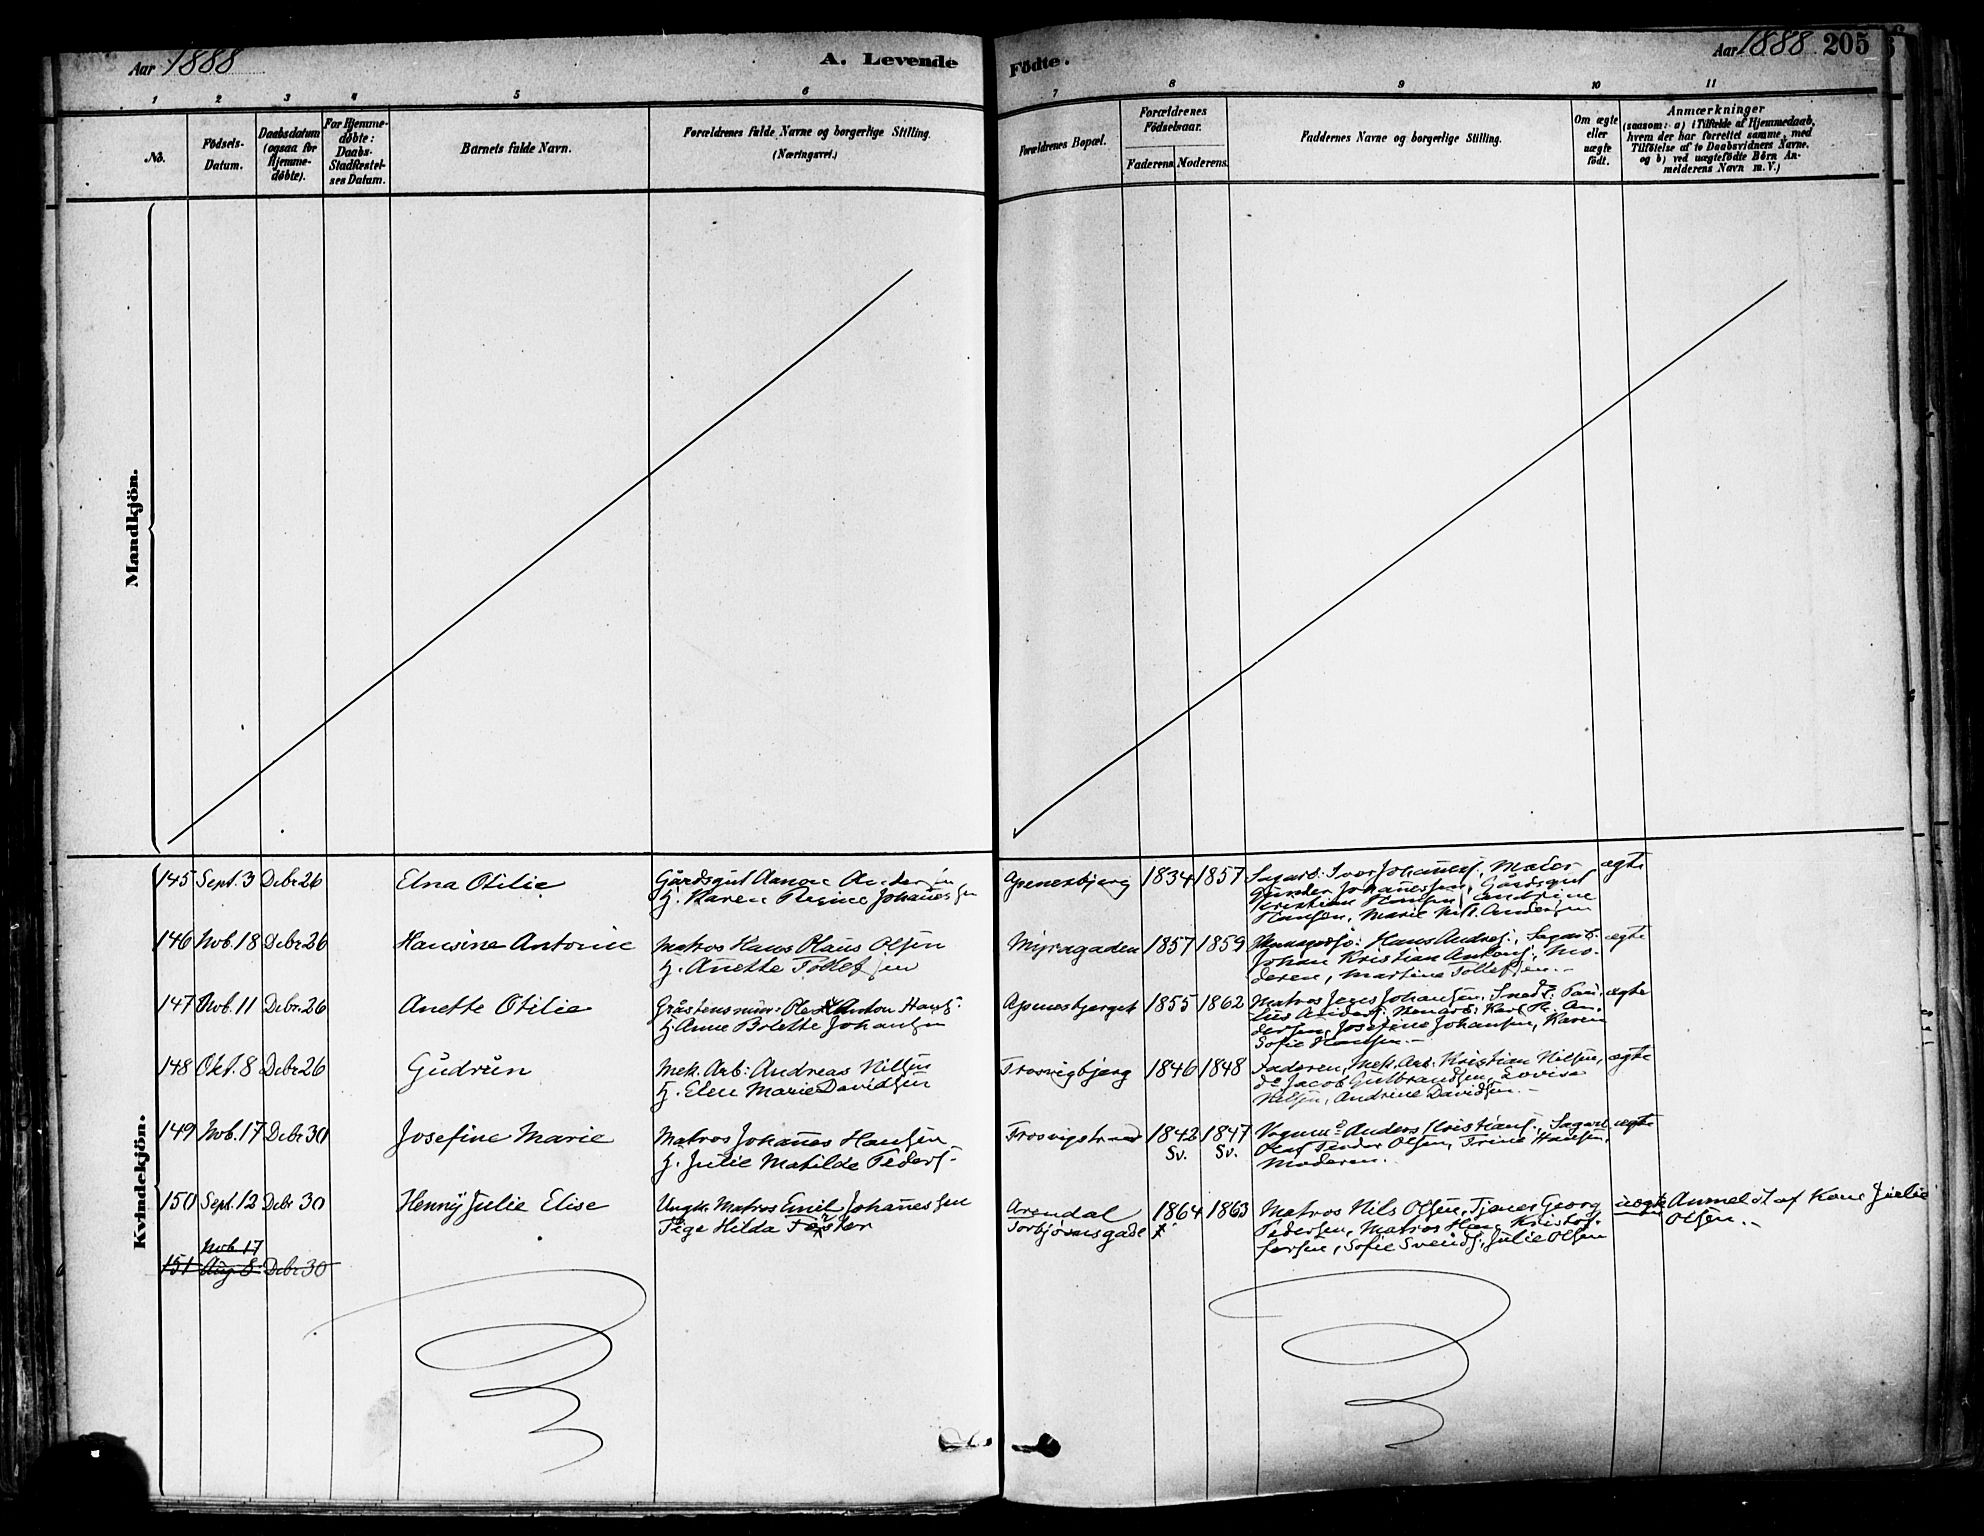 Aar 1888
A. Levende
Födte.
Aar 1888 205
1 2 3 4 5 6 7 8 9 10 11
No.
Födsels-
Datum.
Daabsdatum
(ogsaa for
Hjemme-
döbte).
For Hjemme-
döbte:
Daabs-
Stadfæstel-
ses Datum.
Barnets fulde Navn.
Forældrenes fulde Navne og borgerlige Stilling.
(Næringsvei.)
Forældrenes Bopæl.
Forældrenes
Födselsaar.
Faderens. Moderens.
Faddernes Navne og borgerlige Stilling.
Om ægte
eller
uægte
födt.
Anmærkninger
(saasom: a) i Tilfælde af Hjemmedaab,
hvem der har forrettet samme, med
Tilföielse af to Daabsvidners Navne.
og b) ved uægtefödte Börn An-
melderens Navn m. V.)
Mandkjön.
Kvindekjön.
145 Sept. 3 Debr 26 Elna Otilie
Gårdsgut Aanon Andersen
H. Karen Regine Johannessen
Apenesbjerg 1834 1857
Sagarb. Ivar Johannes, Maler
Gunder Johannessen, Gårdsgut
Kristian Hansen,
Hansen, Marie Andersen
ægte
146 Nob. 18 Debr 26 Hansine Antonie
Matros Hans Olaus Olsen
H. Anette Tollefsen
Myragaden 1857 1859
Hans Andres., Sagarb.
Johan Kristian Antons., Mo-
deren, Martine Tollefsen.-
ægte
147 Nob. 11 Debr. 26 Anette Otilie
Anton Hans.
H. Anne Bolette Johansen
Apenesbjerget 1855 1862
Matros Jens Johansen, Sneds. Pau-
lus Anders. Karl An-
dersen, Josefine Johansen, Karen
Sofie Hansen.-
ægte
148 Okt. 8 Debr 26 Gudrun
Mek. Arb: Andreas Nilsen
H. Elen Marie Davidsen
Trosvigbjerg 1846 1848
Faderen, Mek. Arb. Kristian Nilsen,
do Jacob Gulbrandsen, Lovise
Nilsen, Andrine Davidsen.-
ægte
149 Nob. 17 Debr 30 Josefine Marie
Matros Johannes Hansen
H. Julie Matilde Peders.
Trosvigstrand 1842 1847
Sv. Sv.
Vognm. Anders Kristians., Sagarb.
Olaf Olsen, Trine Hansen,
Moderen.
ægte
150 Sept. 12 Debr 30 Henny Julie Elise
Ungk. Matros Emil Johannessen
Pige Hilda
Arendal 1864 1863
Torbjørnsgade
Matros Nils Olsen, Tjener Georg
Pedersen, Matros Hans Kristof-
fersen, Sofie Svends., Julie Olsen
uægte Anmeldt af Kone Julie
Olsen.-
Nob 17
151 Aug 8 Debr 30